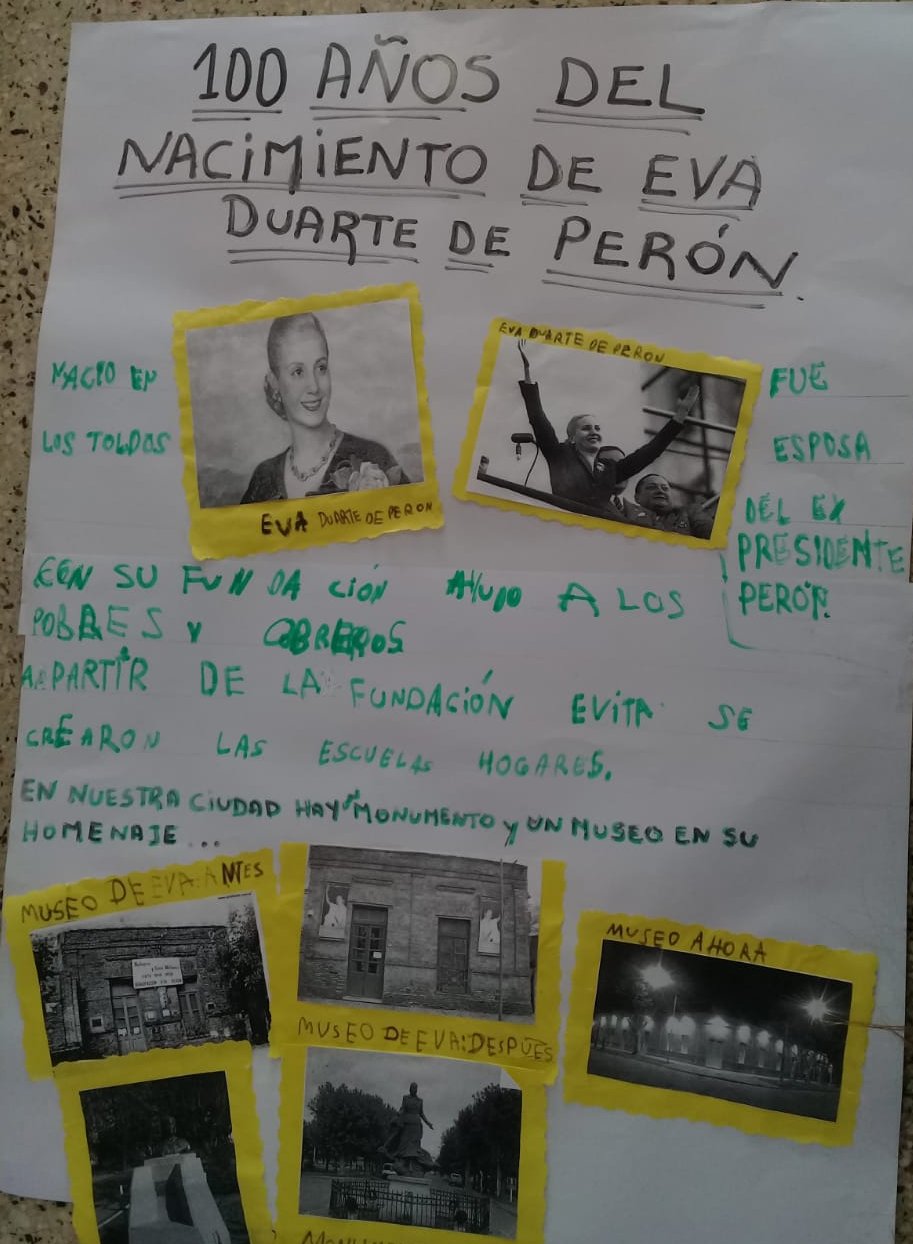 100 AÑOS DEL
NACIMIENTO DE EVA
DUARTE DE PERÓN.
NACIO EN
LOS TOLDOS
EVA DUARTE DE PERON
EVA DUARTE DE PERON
FUE
ESPOSA
DEL EX
PRESIDENTE
PERÓN.
CON SU FUNDACIÓN AYUDO A LOS
POBRES Y OBREROS
A PARTIR DE LA FUNDACIÓN EVITA SE
CREARON LAS ESCUELAS HOGARES.
EN NUESTRA CIUDAD HAY UN MONUMENTO Y UN MUSEO EN SU
HOMENAJE...
MUSEO DE EVA: ANTES
MUSEO DE EVA: DESPUÉS
MUSEO AHORA